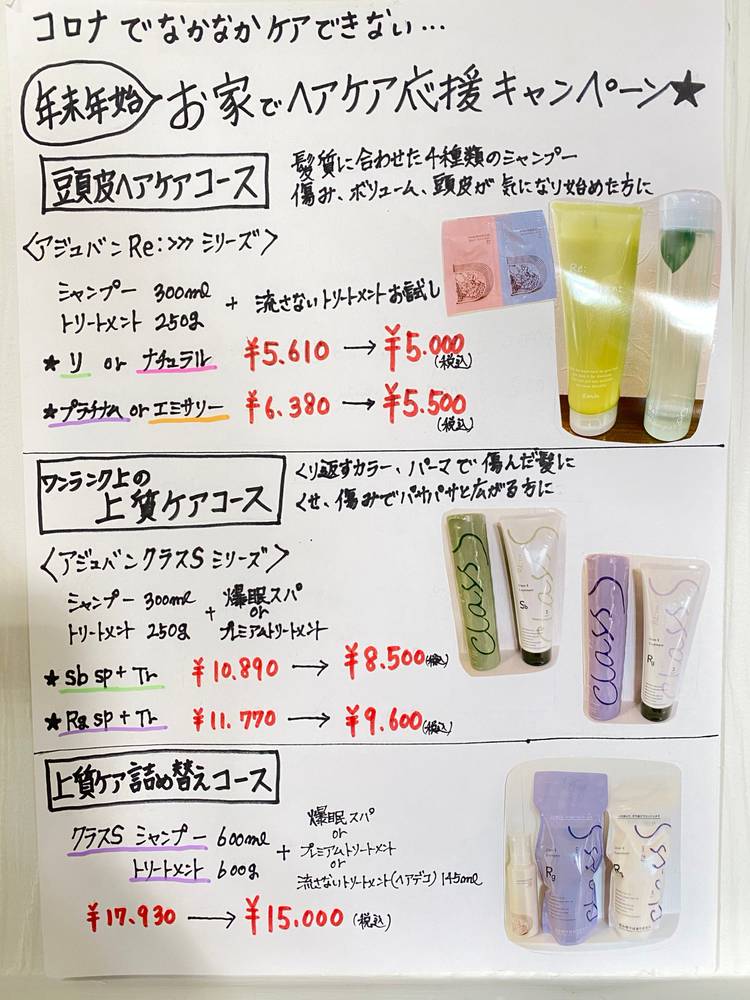 コロナでなかなかケアできない…
年末年始 お家でヘアケア応援キャンペーン★
頭皮ヘアケアコース
髪質に合わせた4種類のシャンプー
傷み、ボリューム、頭皮が気になり始めた方に
〈アジュバンRe:>>>シリーズ〉
シャンプー 300ml
トリートメント 250g
+ 流さないトリートメントお試し
★リ or ナチュラル ¥5.610→¥5.000(税込)
★プラチナム or エミサリー ¥6.380→¥5.500(税込)
Re:
ワンランク上の
上質ケアコース
くり返すカラー、パーマで傷んだ髪に
くせ、傷みでパサパサと広がる方に
〈アジュバンクラスSシリーズ〉
シャンプー 300ml
トリートメント 250g
+ 爆眠スパ
or
プレミアムトリートメント
★Sb sp+Tr ¥10.890→¥8.500(税込)
★Rg sp+Tr ¥11.770→¥9.600(税込)
class S
class S
Sb
class S
class S
Rg
上質ケア詰め替えコース
クラスS シャンプー 600ml
トリートメント 600g
+ 爆眠スパ
or
プレミアムトリートメント
or
流さないトリートメント(ヘアデコ)145ml
¥17.930→¥15.000(税込)
class S
Rg
class S
Rg